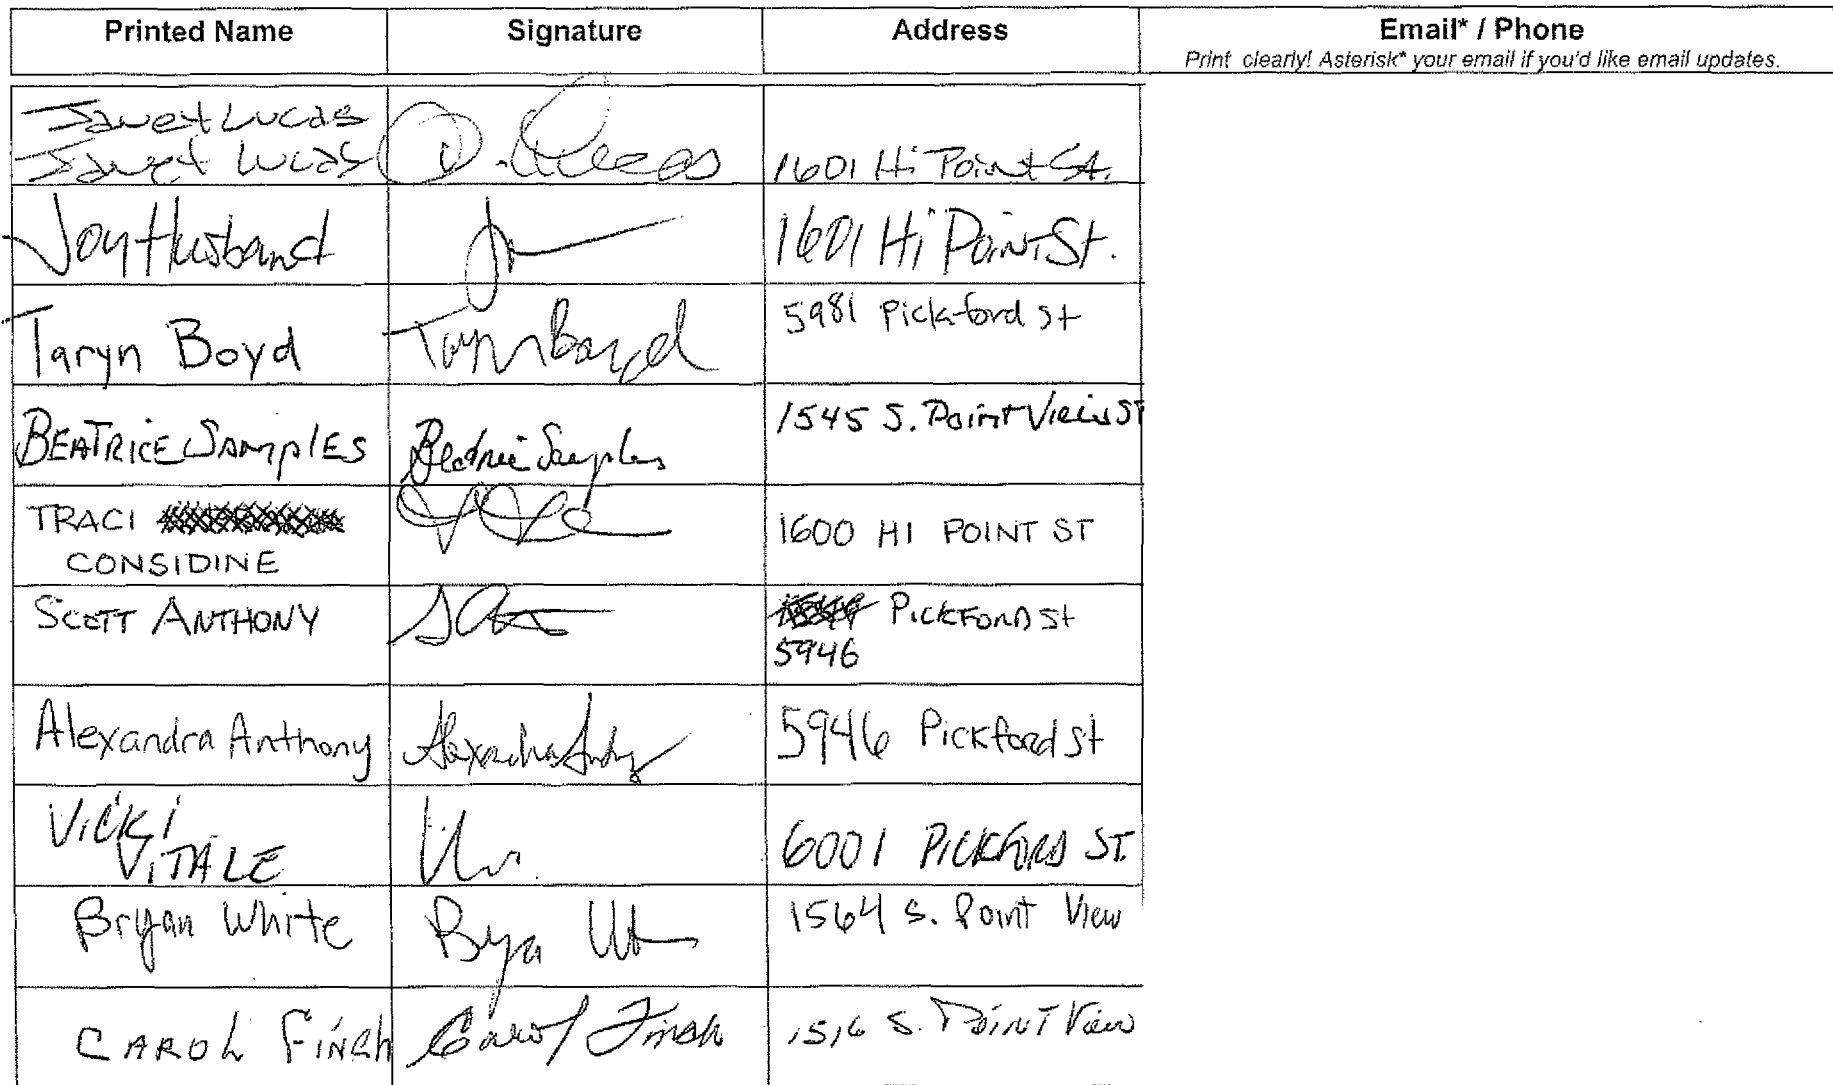 Printed Name Signature Address Email* / Phone
Print clearly! Asterisk* your email if you'd like email updates.
Janet Lucas
Janet Lucas J. Lucas 1601 Hi Point St.
Joy Husband 1601 Hi Point St.
Taryn Boyd Taryn Boyd 5981 Pickford St
BEATRICE SAMPLES Beatrice Samples 1545 S. Point View ST
TRACI 1600 HI POINT ST
CONSIDINE
SCOTT ANTHONY PICKFORD St
5946
Alexandra Anthony Alexandra Anthony 5946 Pickford St
VICKI
VITALE 6001 PICKFORD ST.
Bryan White 1564 S. Point View
CAROL FINCH Carol Finch 1516 S. POINT View